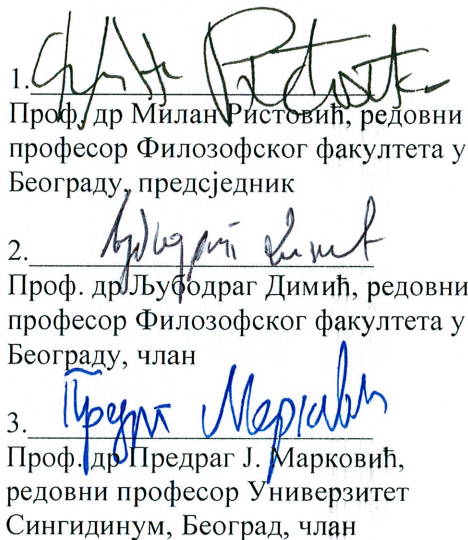 1.
Проф. др Милан Ристовић, редовни
професор Филозофског факултета у
Београду, предсједник
2.
Проф. др Љубодраг Димић, редовни
професор Филозофског факултета у
Београду, члан
Предраг Марковић
3.
Проф. др Предраг Ј. Марковић,
редовни професор Универзитет
Сингидинум, Београд, члан